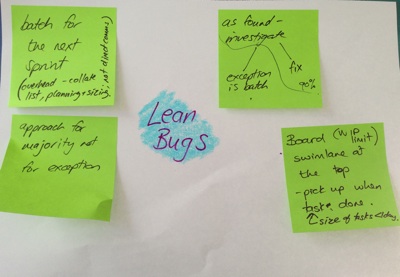 batch for
the next
sprint
(overhead - collate
list, planning + sizing, not direct comms)
as found -
investigate
exception
is batch
fix
90%
Lean
Bugs
approach for
majority not
for exception
Board (WIP limit)
swimlane at
the top
- pick up when
task done.
↑ size of tasks < 1 day.